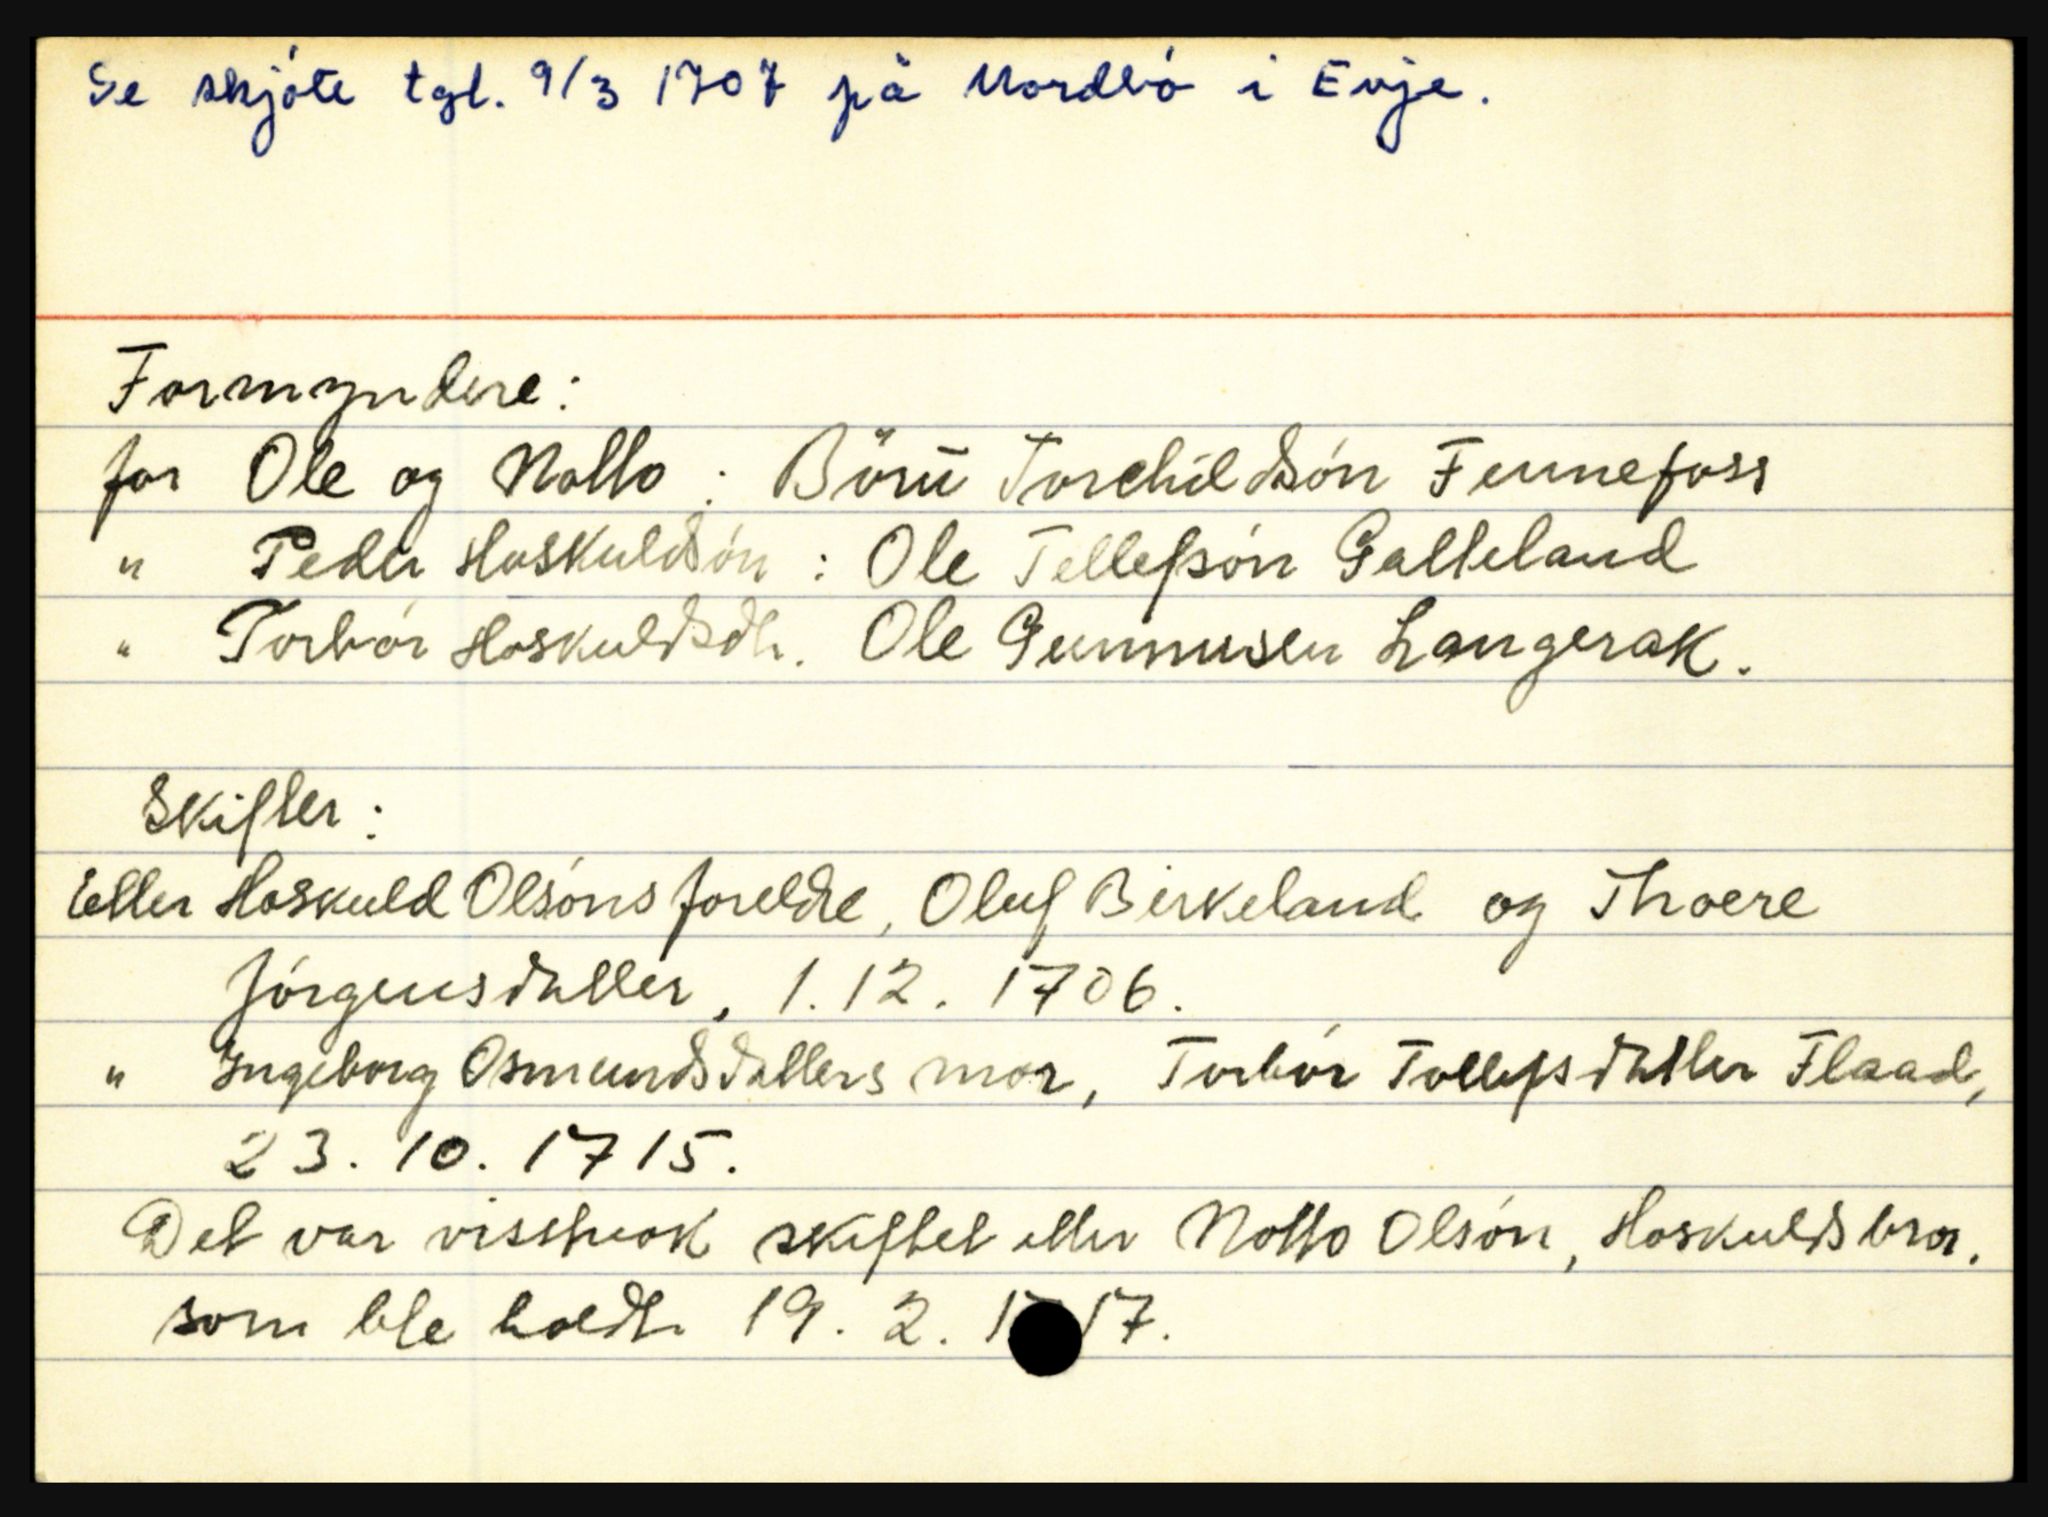 Se skjóte tgl. 9/3 1707 på Nordbó i Evje.
Formyndere:
for Ole og Notto : Börü Torchildsón Fennefoss
" Peder Hoskuldsón : Ole Tellefsón Galteland
" Torbór Hoskuldsdtr. Ole Gunnusen Langerak.
Skifter:
Etter Hoskuld Olsóns foreldre, Oluf Birkeland og Thoere
Jórgensdatter, 1.12.1706.
" Ingeborg Osmundsdatters mor, Torbór Tollefsdatter Flaad,
23.10.1715.
Det var visstnok skiftet etter Notto Olsón, Hoskulds bror,
som ble holdt 19.2.1717.